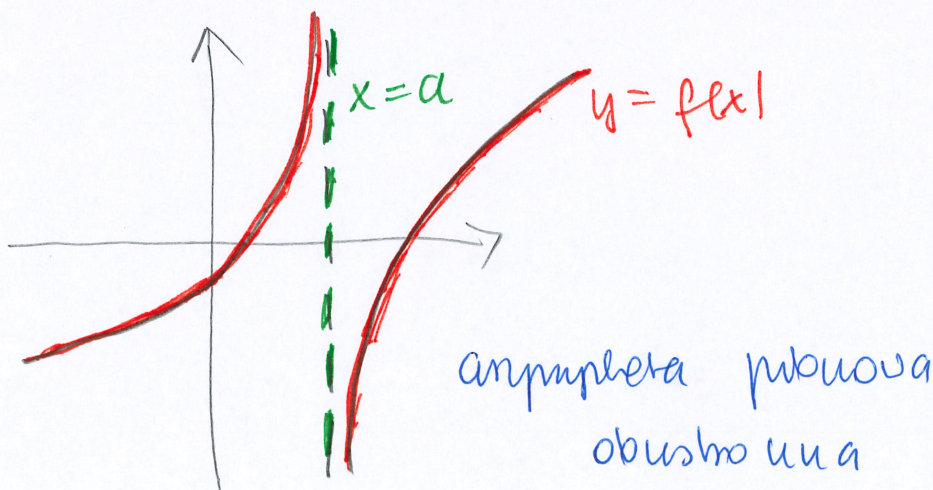 x = a
y = f(x)
asymptota pionowa
obustronna